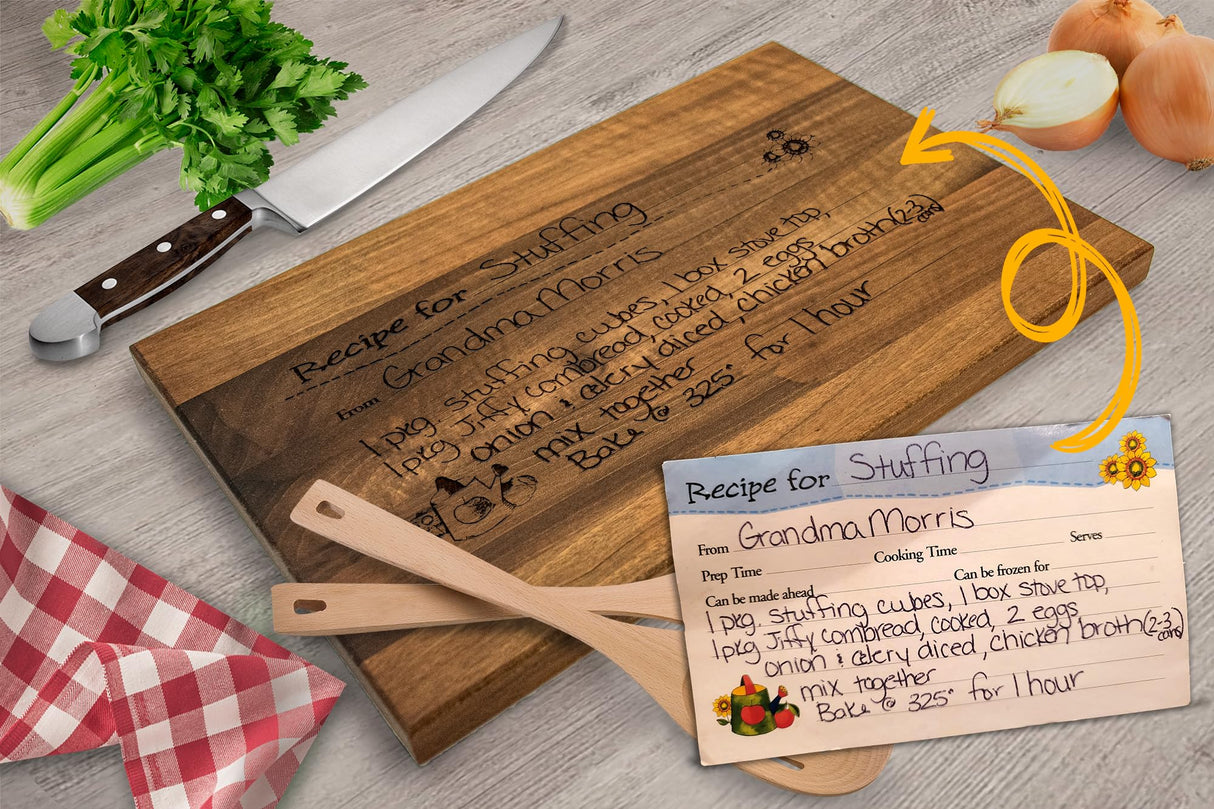 Recipe for Stuffing
From Grandma Morris
1 pkg. stuffing cubes, 1 box stove top,
1pkg Jiffy cornbread, cooked, 2 eggs
onion & celery diced, chicken broth (2-3 cans)
mix together
Bake @ 325° for 1 hour
Recipe for Stuffing
From Grandma Morris
Prep Time Cooking Time Serves
Can be made ahead Can be frozen for
1 pkg. stuffing cubes, 1 box stove top,
1pkg Jiffy cornbread, cooked, 2 eggs
onion & celery diced, chicken broth (2-3 cans)
mix together
Bake @ 325° for 1 hour